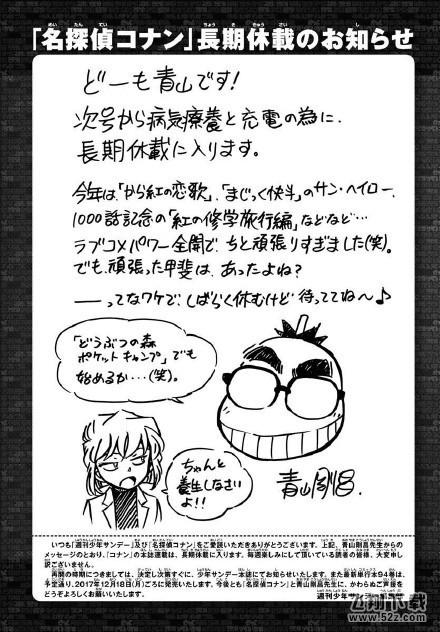 「名探偵コナン」長期休載のお知らせ
どーも青山です!
次号から病気療養と充電の為に、
長期休載に入ります。
今年は、「から紅の恋歌」、「まじっく快斗」のサン・ヘイロー、
1000話記念の「紅の修学旅行編」などなど…
ラブコメパワー全開で、ちと頑張りすぎました(笑)。
でも、頑張った甲斐は、あったよね?
ーーってなワケで、しばらく休むけど待っててね〜♪
「どうぶつの森
ポケットキャンプ」でも
始めるか…(笑)。
ちゃんと
養生しなさい
よ!!
青山剛昌
いつも「週刊少年サンデー」及び「名探偵コナン」をご愛読いただきありがとうございます。上記、青山剛昌先生からの
メッセージのとおり、「コナン」の本誌連載は、長期休載に入ります。毎週楽しみにして頂いている読者の皆様、大変申し
訳ございません。
再開の時期につきましては、決定し次第すぐに、少年サンデー本誌にてお知らせいたします。また最新単行本94巻は、
予定通り、2017年12月18日(月)ごろに発売いたします。今後とも「名探偵コナン」と青山剛昌先生に、かわらぬご声援を
どうぞよろしくお願いいたします。
週刊少年サンデー編集部
飞翔下载
www.52z.com